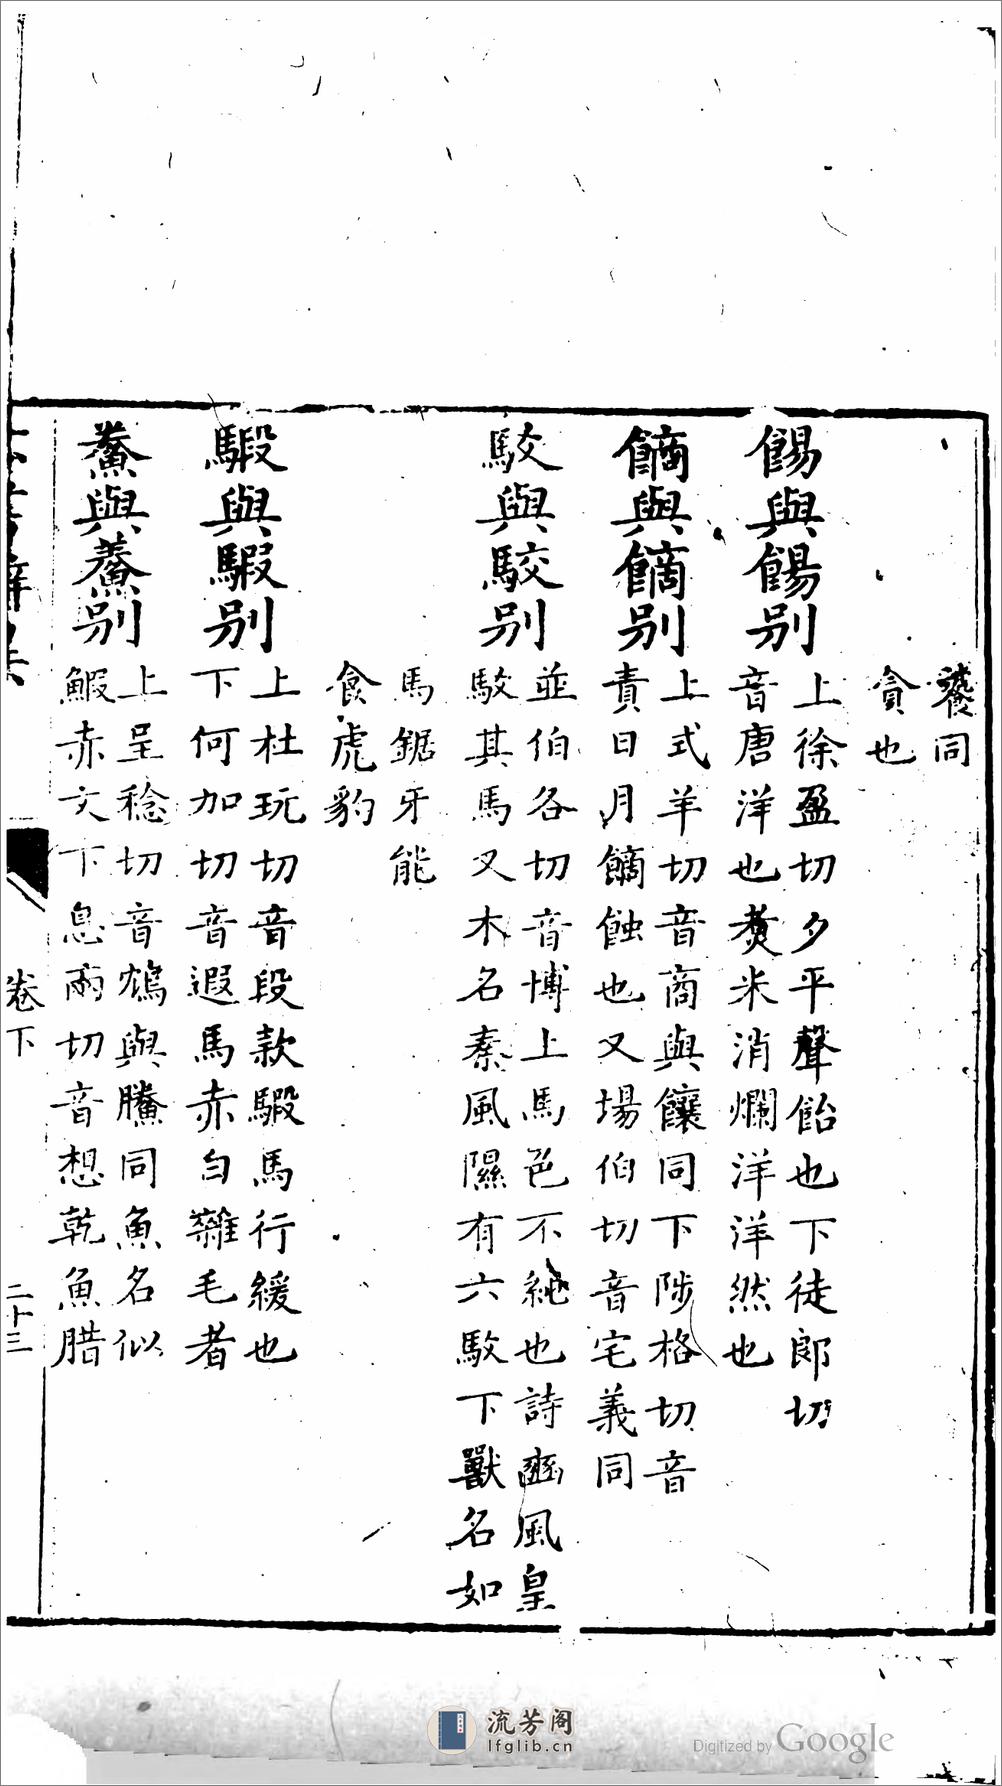 饕同
貪也
餳與餳别
上徐盈切夕平聲飴也下徒郎切
音唐洋也煑米消爛洋洋然也
餙與餙别
上式羊切音商與饟同下陟格切音
責日月餙蝕也又場伯切音宅義同
駁與駮别
並伯各切音博上馬色不純也詩豳風皇
駁其馬又木名秦風隰有六駁下獸名如
馬鋸牙能
食虎豹
騢與騢别
上杜玩切音段款騢馬行緩也
下何加切音遐馬赤白雜毛者
鮝與鯗别
上呈稔切音鴆與䲢同魚名似
鰕赤文下息兩切音想乾魚腊
卷下
二十三
流芳阁
lfglib.cn
Digitized by Google